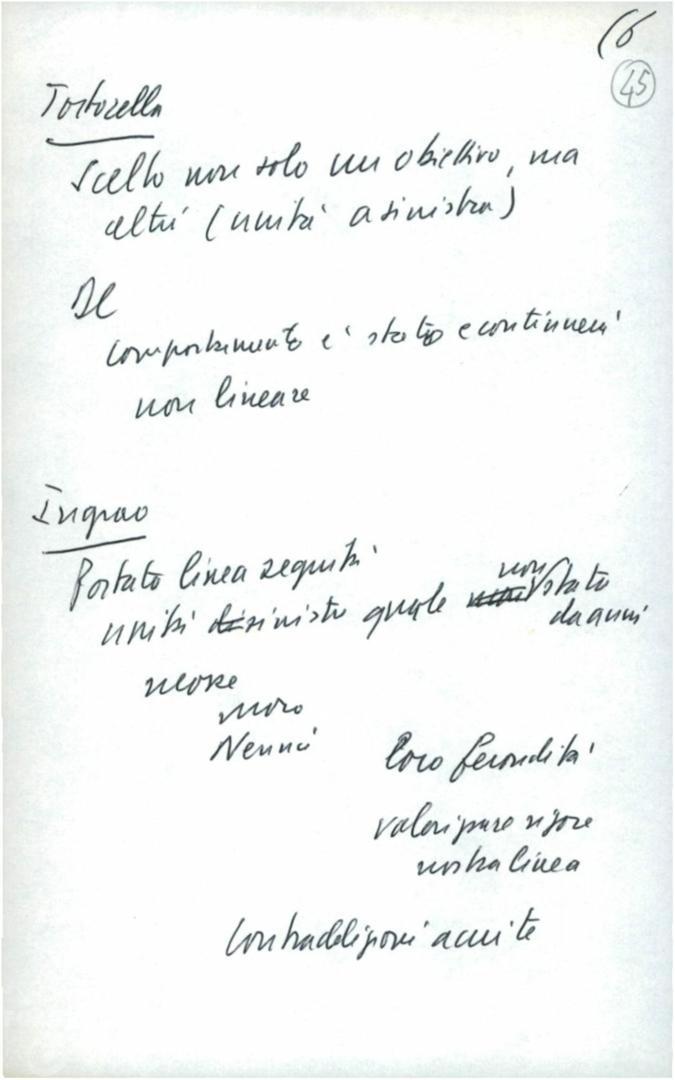 16
45
Tortorella
Scelto non solo un obiettivo, ma
altri (unità a sinistra)
DC
comportamento è stato e continuerà
non lineare
Ingrao
Portato linea seguita
unità sinistra quale non stato
da anni
Moro
Nenni
Loro fecondità
valori pure rigore
nostra linea
Contraddizioni acuite